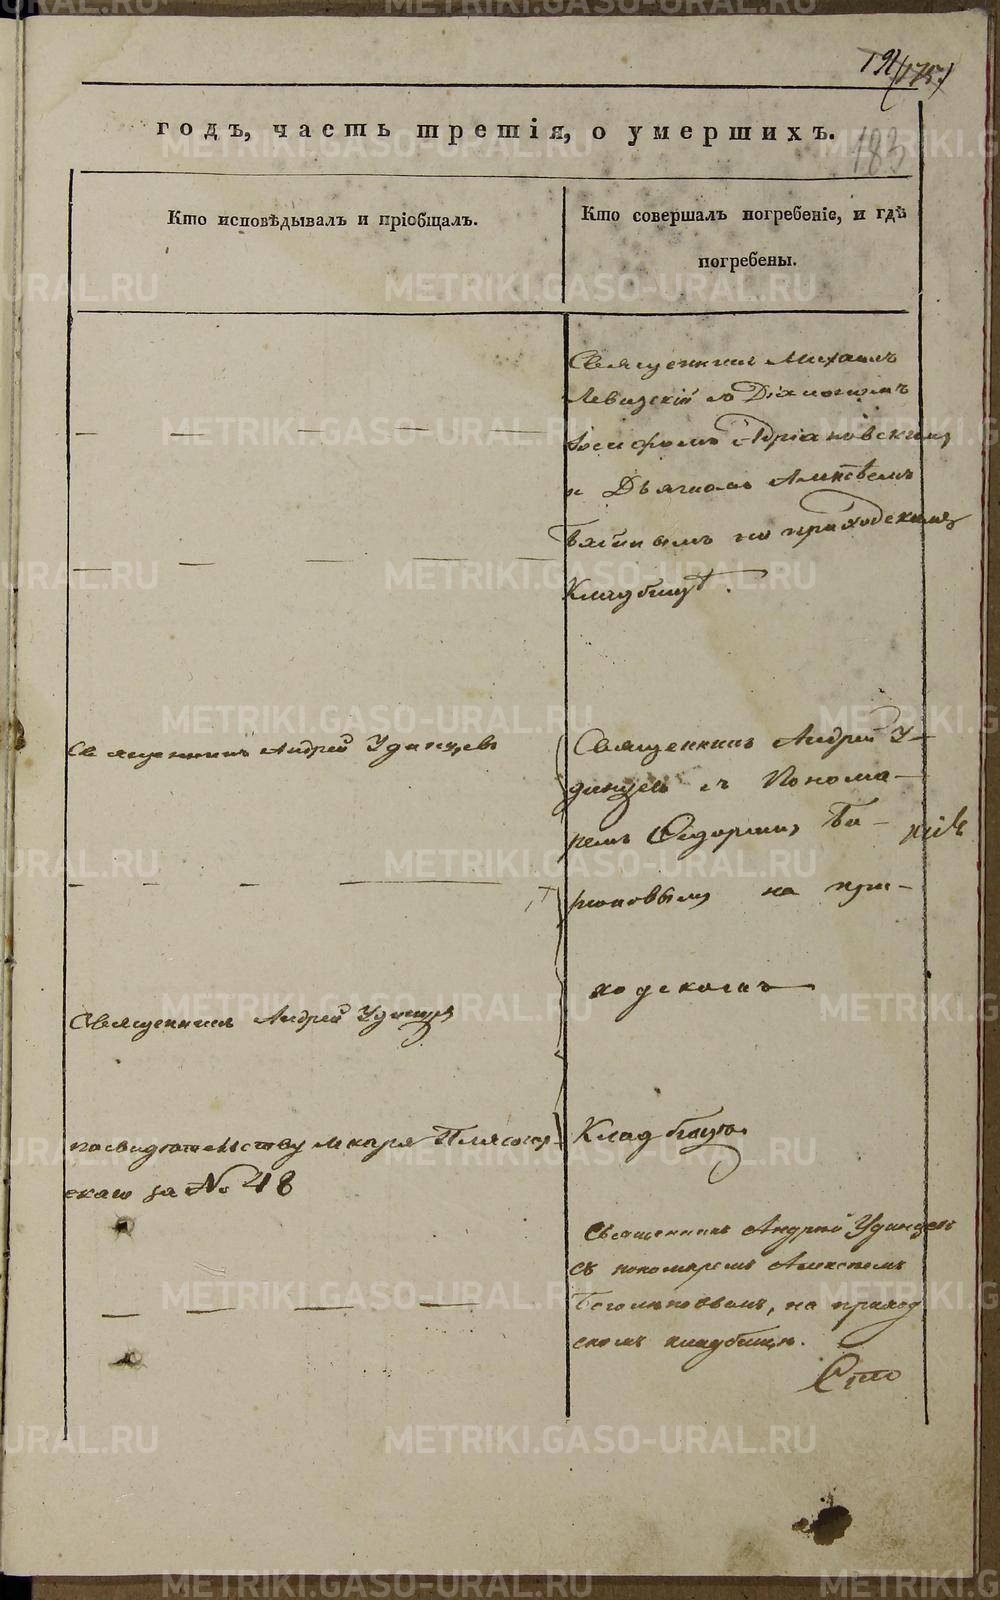 191 (175)
183
годъ, часть третія, о умершихъ.
Кто исповѣдывалъ и пріобщалъ.
Кто совершалъ погребеніе, и гдѣ
погребены.
Священникъ Михаилъ
Левицкій съ Діакономъ
Іосифомъ Адріановскимъ
и Дьячкомъ Алексѣемъ
на приходскомъ
Кладбищѣ.
Священникъ Андрей Удинцевъ
Священникъ Андрей У-
динцевъ съ Понома-
ремъ Ѳедоромъ
на при-
ходскомъ
Священникъ Андрей Удинцевъ
по свидѣтельству лекаря
скаго за № 48
Кладбищѣ
Священникъ Андрей Удинцевъ
съ пономаремъ Алексѣемъ
Боголѣповымъ, на приход
скомъ кладбищѣ.
METRIKI.GASO-URAL.RU